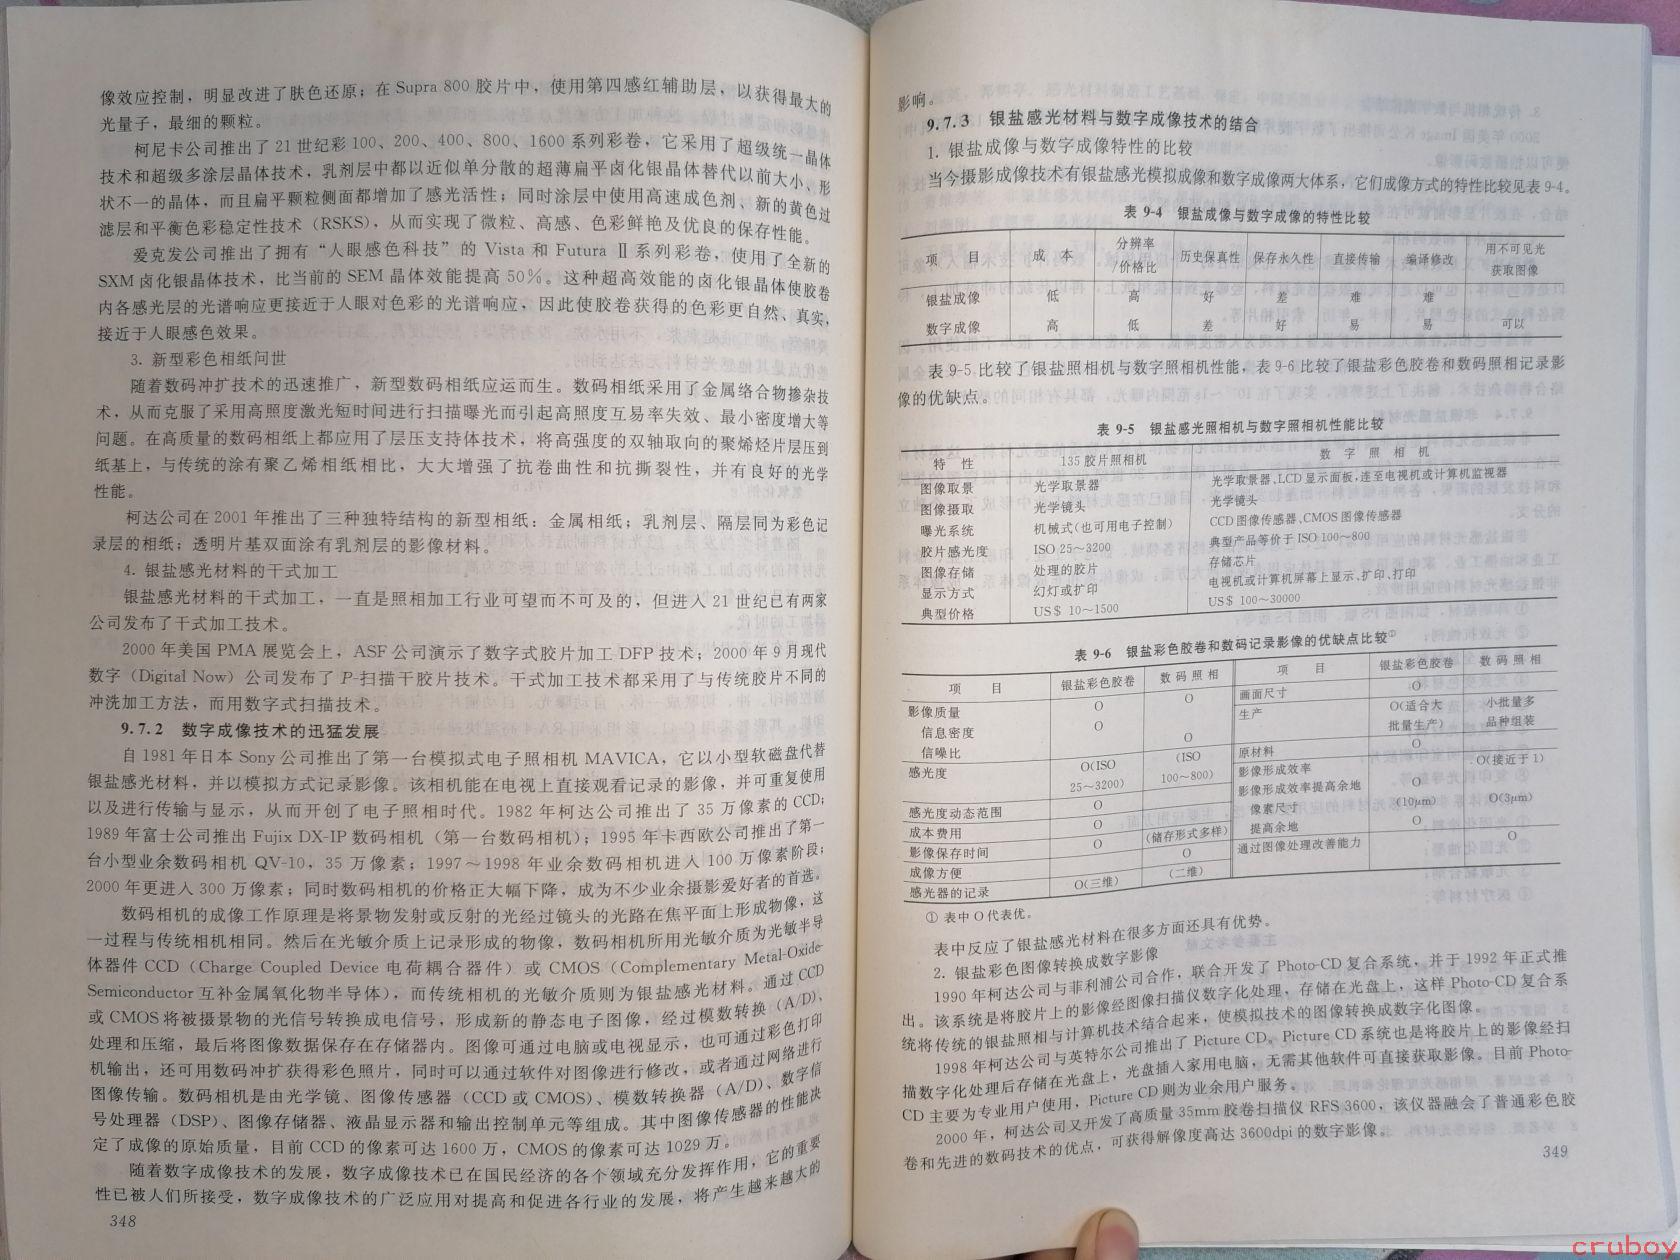 像效应控制，明显改进了肤色还原；在 Supra 800 胶片中，使用第四感红辅助层，以获得最大的
光量子，最细的颗粒。
柯尼卡公司推出了 21 世纪彩 100、200、400、800、1600 系列彩卷，它采用了超级统一晶体
技术和超级多涂层晶体技术，乳剂层中都以近似单分散的超薄扁平卤化银晶体替代以前大小、形
状不一的晶体，而且扁平颗粒侧面都增加了感光活性；同时涂层中使用高速成色剂、新的黄色过
滤层和平衡色彩稳定性技术（RSKS），从而实现了微粒、高感、色彩鲜艳及优良的保存性能。
爱克发公司推出了拥有“人眼感色科技”的 Vista 和 Futura Ⅱ 系列彩卷，使用了全新的
SXM 卤化银晶体技术，比当前的 SEM 晶体效能提高 50%。这种超高效能的卤化银晶体使胶卷
内各感光层的光谱响应更接近于人眼对色彩的光谱响应，因此使胶卷获得的色彩更自然、真实，
接近于人眼感色效果。
3. 新型彩色相纸问世
随着数码冲扩技术的迅速推广，新型数码相纸应运而生。数码相纸采用了金属络合物掺杂技
术，从而克服了采用高照度激光短时间进行扫描曝光而引起高照度互易率失效、最小密度增大等
问题。在高质量的数码相纸上都应用了层压支持体技术，将高强度的双轴取向的聚烯烃片层压到
纸基上，与传统的涂有聚乙烯相纸相比，大大增强了抗卷曲性和抗撕裂性，并有良好的光学
性能。
柯达公司在 2001 年推出了三种独特结构的新型相纸：金属相纸；乳剂层、隔层同为彩色记
录层的相纸；透明片基双面涂有乳剂层的影像材料。
4. 银盐感光材料的干式加工
银盐感光材料的干式加工，一直是照相加工行业可望而不可及的，但进入 21 世纪已有两家
公司发布了干式加工技术。
2000 年美国 PMA 展览会上，ASF 公司演示了数字式胶片加工 DFP 技术；2000 年 9 月现代
数字（Digital Now）公司发布了 P-扫描干胶片技术。干式加工技术都采用了与传统胶片不同的
冲洗加工方法，而用数字式扫描技术。
9.7.2 数字成像技术的迅猛发展
自 1981 年日本 Sony 公司推出了第一台模拟式电子照相机 MAVICA，它以小型软磁盘代替
银盐感光材料，并以模拟方式记录影像。该相机能在电视上直接观看记录的影像，并可重复使用
以及进行传输与显示，从而开创了电子照相时代。1982 年柯达公司推出了 35 万像素的 CCD；
1989 年富士公司推出 Fujix DX-IP 数码相机（第一台数码相机）；1995 年卡西欧公司推出了第一
台小型业余数码相机 QV-10，35 万像素；1997～1998 年业余数码相机进入 100 万像素阶段；
2000 年更进入 300 万像素；同时数码相机的价格正大幅下降，成为不少业余摄影爱好者的首选。
数码相机的成像工作原理是将景物发射或反射的光经过镜头的光路在焦平面上形成物像，这
一过程与传统相机相同。然后在光敏介质上记录形成的物像，数码相机所用光敏介质为光敏半导
体器件 CCD（Charge Coupled Device 电荷耦合器件）或 CMOS（Complementary Metal-Oxide-
Semiconductor 互补金属氧化物半导体），而传统相机的光敏介质则为银盐感光材料。通过 CCD
或 CMOS 将被摄景物的光信号转换成电信号，形成新的静态电子图像，经过模数转换（A/D）、
处理和压缩，最后将图像数据保存在存储器内。图像可通过电脑或电视显示，也可通过彩色打印
机输出，还可用数码冲扩获得彩色照片，同时可以通过软件对图像进行修改，或者通过网络进行
图像传输。数码相机是由光学镜、图像传感器（CCD 或 CMOS）、模数转换器（A/D）、数字信
号处理器（DSP）、图像存储器、液晶显示器和输出控制单元等组成。其中图像传感器的性能决
定了成像的原始质量，目前 CCD 的像素可达 1600 万，CMOS 的像素可达 1029 万。
随着数字成像技术的发展，数字成像技术已在国民经济的各个领域充分发挥作用，它的重要
性已被人们所接受，数字成像技术的广泛应用对提高和促进各行业的发展，将产生越来越大的
348
影响。
9.7.3 银盐感光材料与数字成像技术的结合
1. 银盐成像与数字成像特性的比较
当今摄影成像技术有银盐感光模拟成像和数字成像两大体系，它们成像方式的特性比较见表 9-4。
表 9-4 银盐成像与数字成像的特性比较
项 目 成 本 分辨率/价格比 历史保真性 保存永久性 直接传输 编译修改 用不可见光获取图像
银盐成像 低 高 好 差 难 难 —
数字成像 高 低 差 好 易 易 可以
表 9-5 比较了银盐照相机与数字照相机性能，表 9-6 比较了银盐彩色胶卷和数码照相记录影
像的优缺点。
表 9-5 银盐感光照相机与数字照相机性能比较
特 性 135 胶片照相机 数 字 照 相 机
图像取景 光学取景器 光学取景器、LCD 显示面板，连至电视机或计算机监视器
图像摄取 光学镜头 光学镜头
曝光系统 机械式(也可用电子控制) CCD 图像传感器、CMOS 图像传感器
胶片感光度 ISO 25～3200 典型产品等价于 ISO 100～800
图像存储 处理的胶片 存储芯片
显示方式 幻灯或扩印 电视机或计算机屏幕上显示、扩印、打印
典型价格 US$ 10～1500 US$ 100～30000
表 9-6 银盐彩色胶卷和数码记录影像的优缺点比较①
项 目 银盐彩色胶卷 数 码 照 相 项 目 银盐彩色胶卷 数 码 照 相
影像质量 O O 画面尺寸 O
信息密度 O 生产 O(适合大批量生产) 小批量多品种组装
信噪比 O 原材料 O
感光度 O(ISO 25～3200) (ISO 100～800) 影像形成效率 O(接近于 1)
影像形成效率提高余地 O
感光度动态范围 O 像素尺寸 (10μm) O(3μm)
成本费用 O 提高余地 O
影像保存时间 O (储存形式多样) 通过图像处理改善能力 O
成像方便 O
感光器的记录 O(三维) (二维)
① 表中 O 代表优。
表中反应了银盐感光材料在很多方面还具有优势。
2. 银盐彩色图像转换成数字影像
1990 年柯达公司与菲利浦公司合作，联合开发了 Photo-CD 复合系统，并于 1992 年正式推
出。该系统是将胶片上的影像经图像扫描仪数字化处理，存储在光盘上，这样 Photo-CD 复合系
统将传统的银盐照相与计算机技术结合起来，使模拟技术的图像转换成数字化图像。
1998 年柯达公司与英特尔公司推出了 Picture CD。Picture CD 系统也是将胶片上的影像经扫
描数字化处理后存储在光盘上，光盘插入家用电脑，无需其他软件可直接获取影像。目前 Photo-
CD 主要为专业用户使用，Picture CD 则为业余用户服务。
2000 年，柯达公司又开发了高质量 35mm 胶卷扫描仪 RFS 3600，该仪器融会了普通彩色胶
卷和先进的数码技术的优点，可获得解像度高达 3600dpi 的数字影像。
349
cruboy